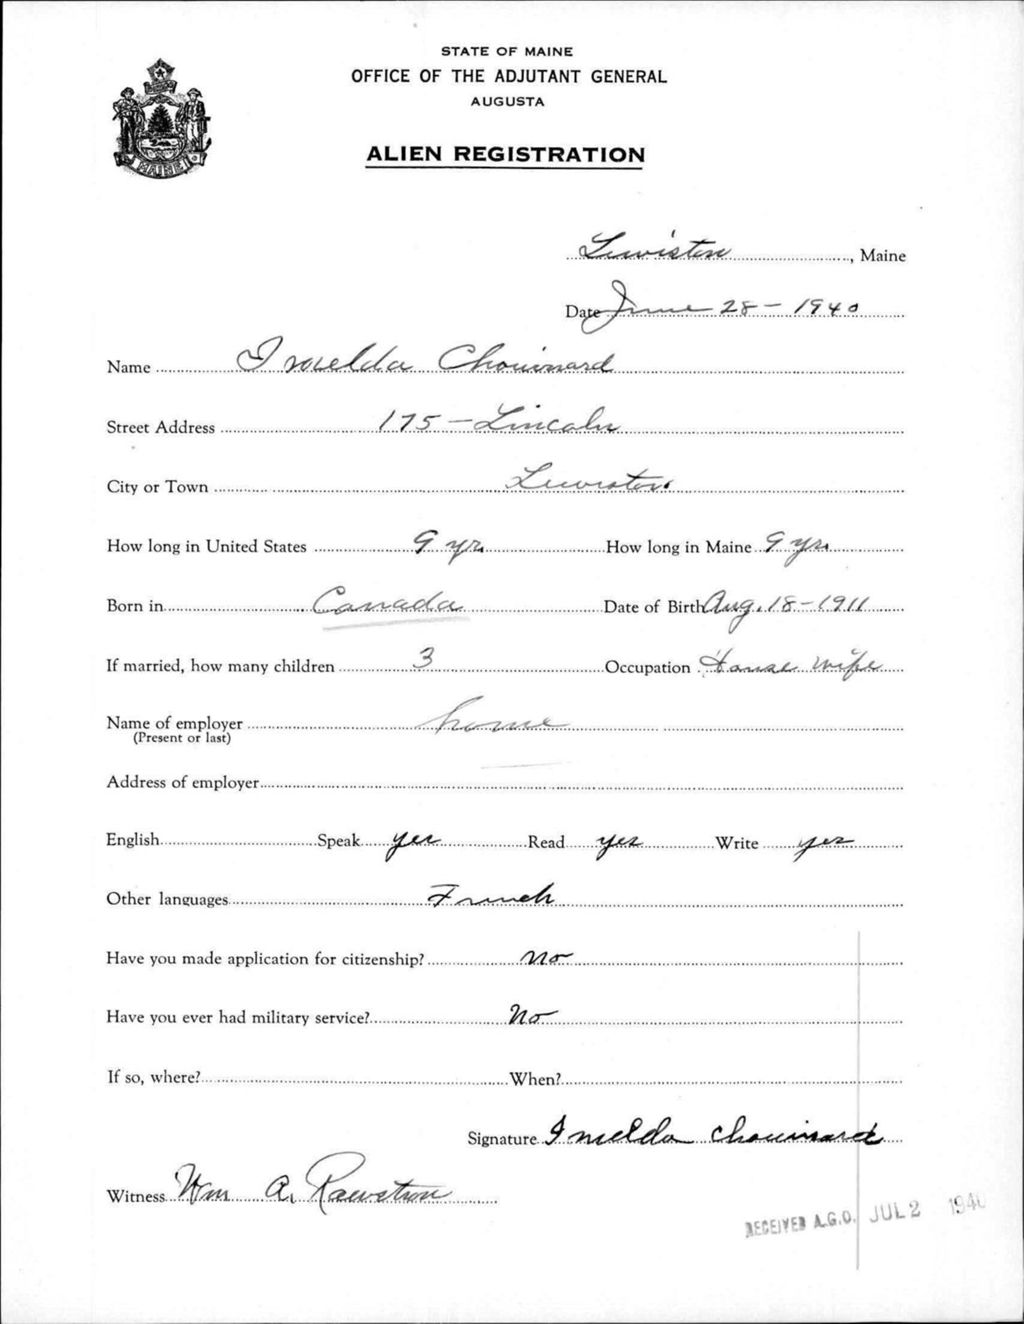 STATE OF MAINE
OFFICE OF THE ADJUTANT GENERAL
AUGUSTA
ALIEN REGISTRATION
MAINE
Lewiston, Maine
Date June 28 - 1940
Name Imelda Chouinard
Street Address 175 - Lincoln
City or Town Lewiston
How long in United States 9 yr. How long in Maine 9 yrs.
Born in Canada Date of Birth Aug. 18 - 1911
If married, how many children 3 Occupation House wife
Name of employer home
(Present or last)
Address of employer
English Speak yes Read yes Write yes
Other languages French
Have you made application for citizenship? no
Have you ever had military service? No
If so, where? When?
Signature Imelda Chouinard
Witness Wm A. Rawstron
RECEIVED A.G.O. JUL 2 1940